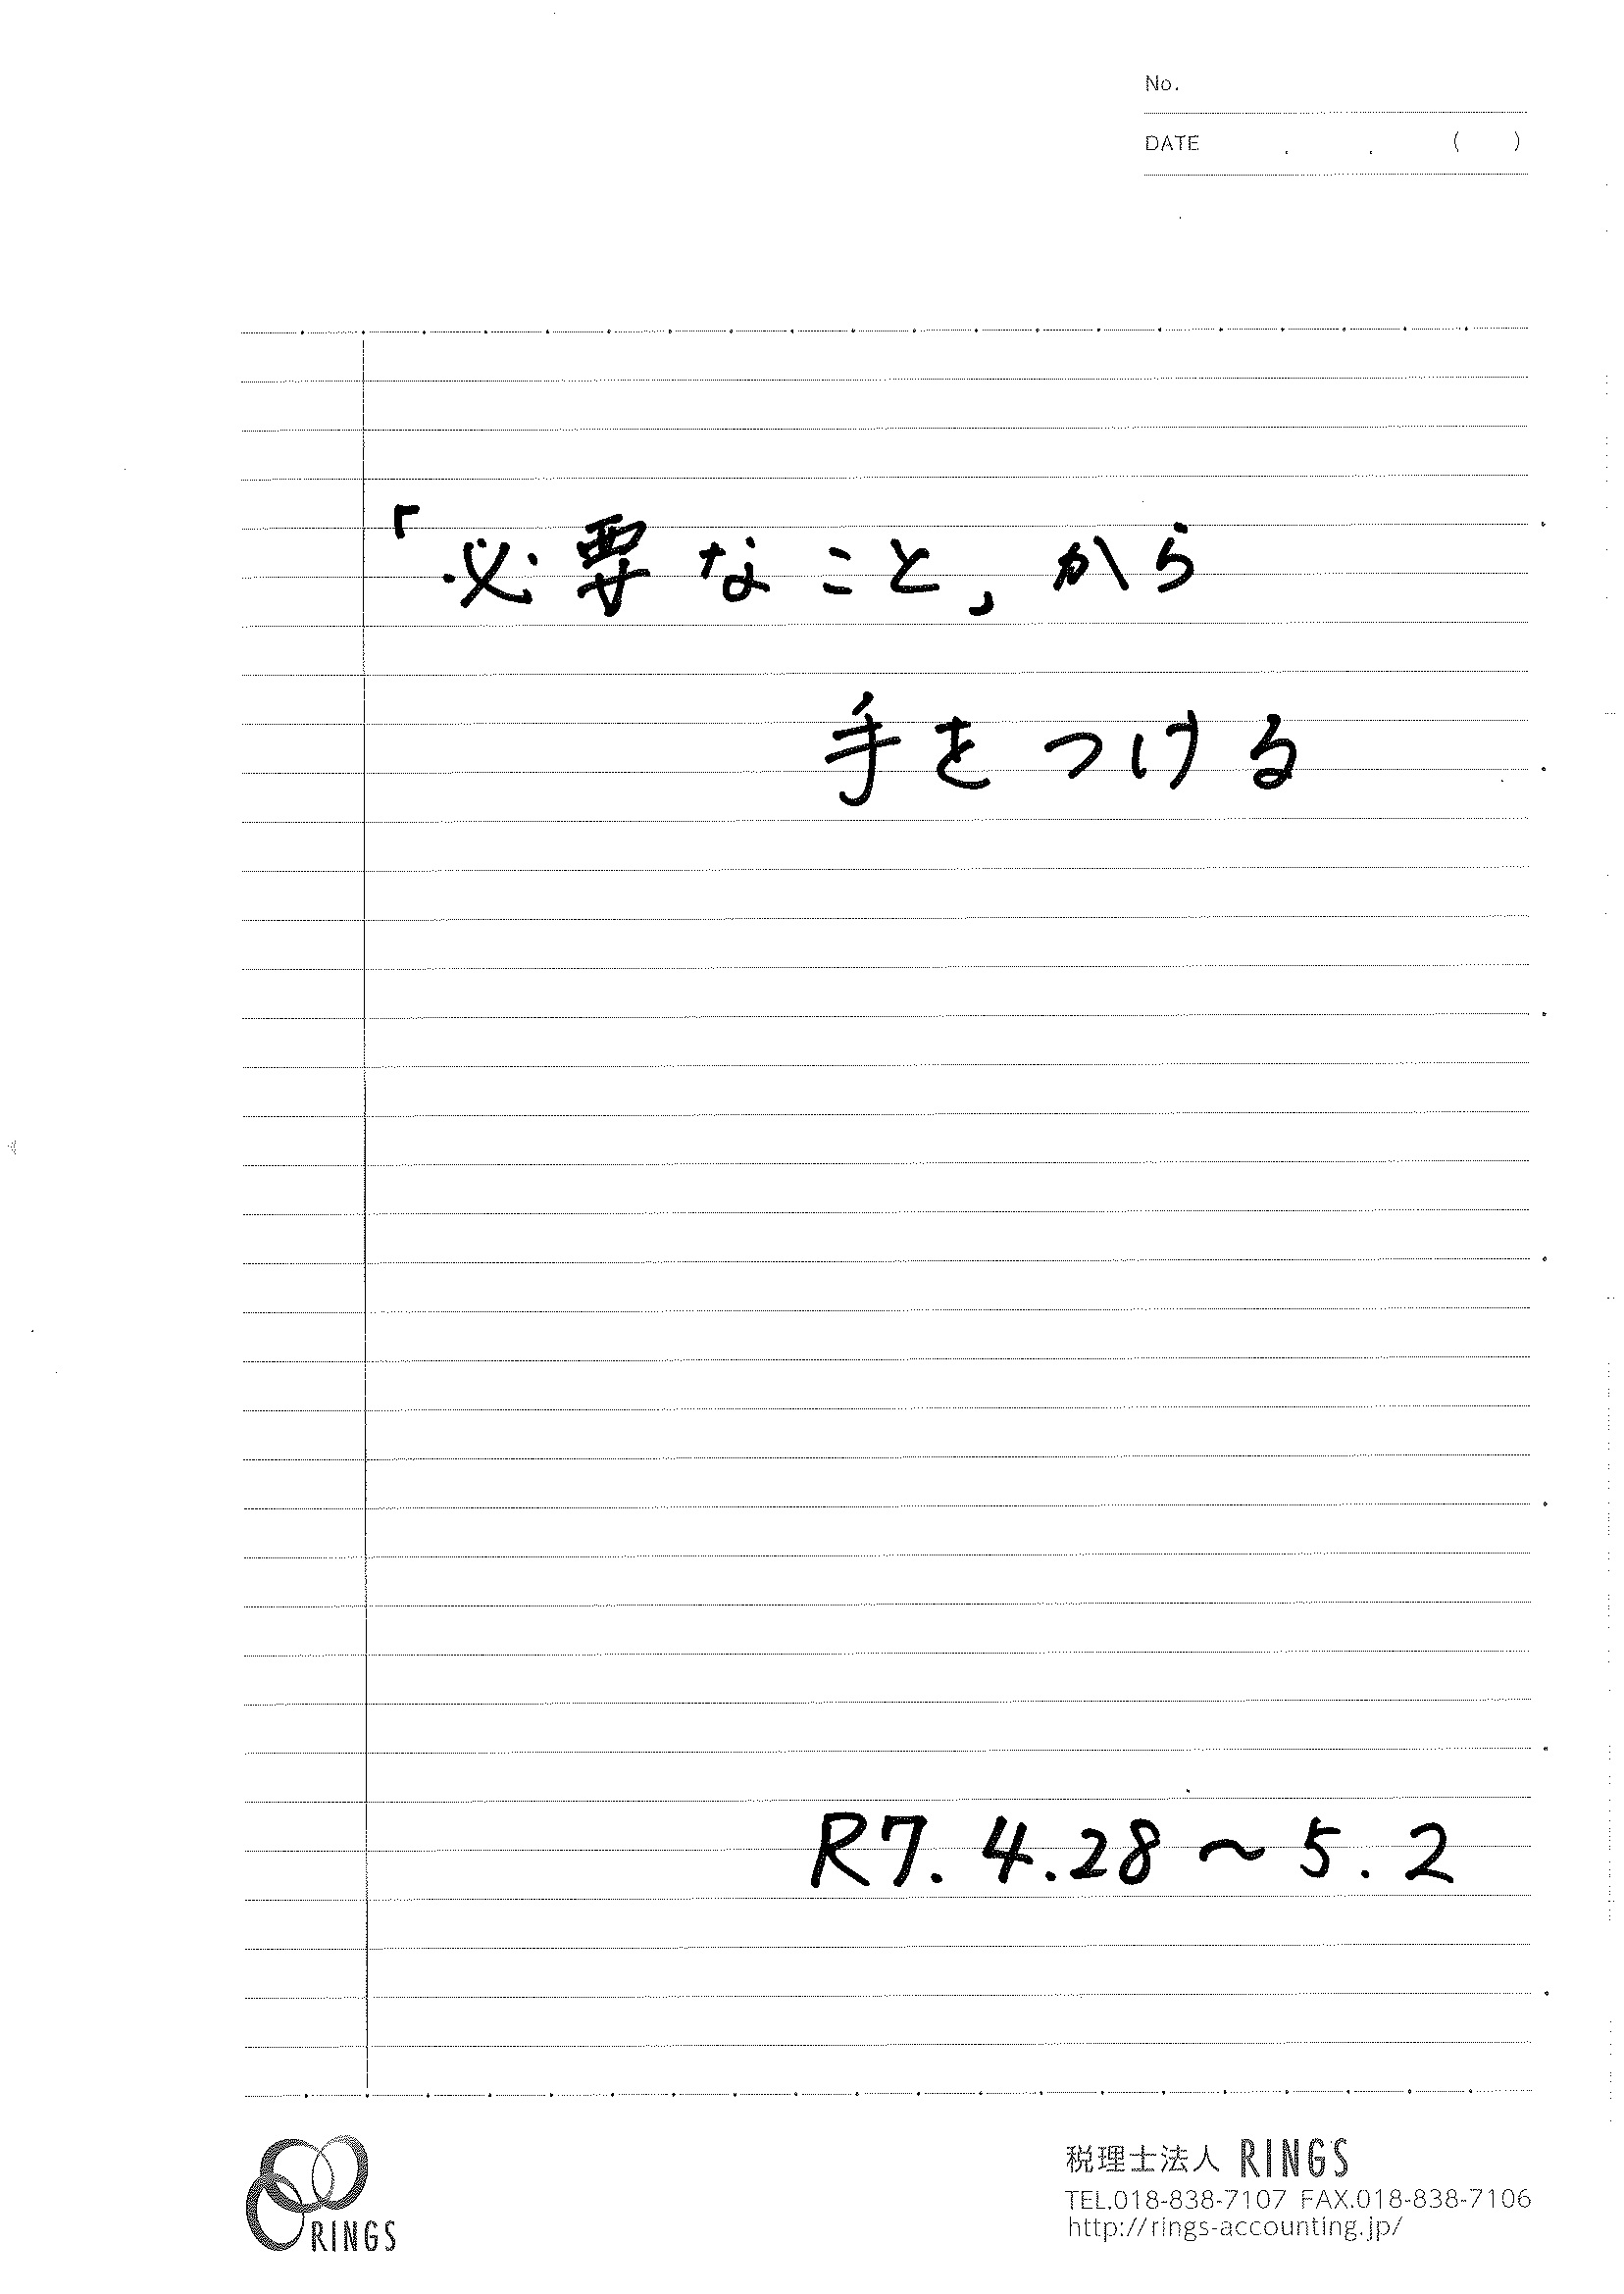 No.
DATE . . ( )
「必要なこと」から
手をつける
R7.4.28～5.2
RINGS
税理士法人 RINGS
TEL.018-838-7107 FAX.018-838-7106
http://rings-accounting.jp/